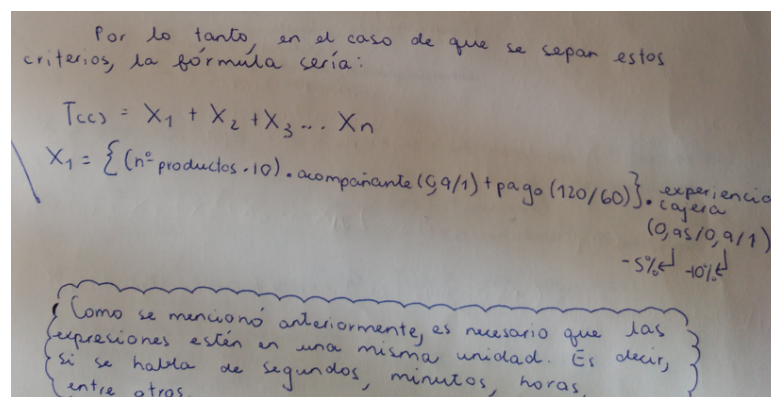 Por lo tanto, en el caso de que se sepan estos
criterios, la fórmula sería:
T(cs) = X1 + X2 + X3 ... Xn
X1 = { (nº productos · 10) · acompañante (0,9/1) + pago (120/60) } · experiencia
cajera
(0,95/0,9/1)
-5% -10%
Como se mencionó anteriormente, es necesario que las
expresiones estén en una misma unidad. Es decir,
si se habla de segundos, minutos, horas,
entre otros.